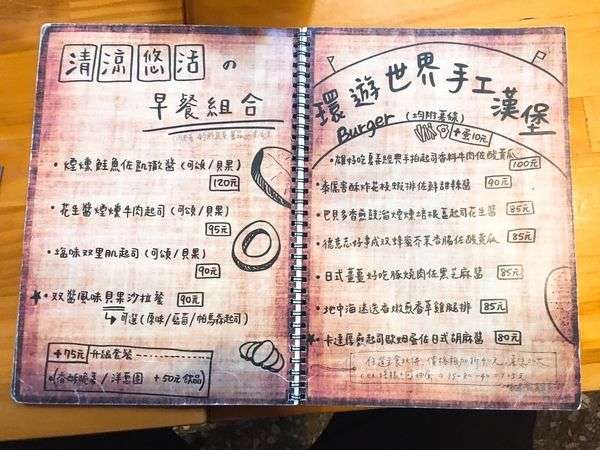 清涼悠活の
早餐組合
・煙燻鮭魚佐凱撒醬(可頌/貝果)
120元
・花生醬煙燻牛肉起司(可頌/貝果)
95元
・塩味双里肌起司(可頌/貝果)
90元
★双醬風味貝果沙拉餐 90元
↳可選(原味/藍莓/帕馬森起司)
+75元 升級套餐
香酥脆薯/洋蔥圈 +50元飲品
環遊世界手工漢堡
Burger (均附薯條)
+蛋10元
起司香料牛肉佐酸黃瓜
100元
花枝蝦排佐鮮甜辣醬 90元
煙燻培根蓋起司花生醬 85元
・德意志好事成双蜂蜜芥茉香腸佐酸黃瓜 85元
・日式薑薑好吃豚燒肉佐黑芝麻醬 85元
・地中海迷迭香嫩煎香草雞腿排 85元
★卡達厚煎起司歐姆蛋佐日式胡麻醬 80元